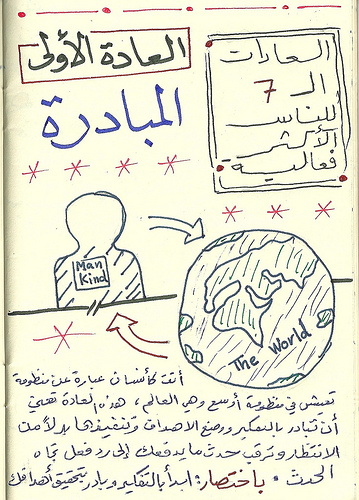 العادات
الـ 7
للناس
الأكثر
فعالية
العادة الأولى
المبادرة
Man
Kind
The World
أنت كأنسان عبارة عن منظومة
تعيش في منظومة أوسع وهي العالم، هذه العادة تعني
أن تبادر بالتفكير ووضع الاهداف وتنفيذها بدلاً من
الانتظار وترقب حدث ما يدفعك إلى رد فعل تجاه
الحدث. باختصار: ابدأ بالتفكير وبادر بتحقيق أهدافك